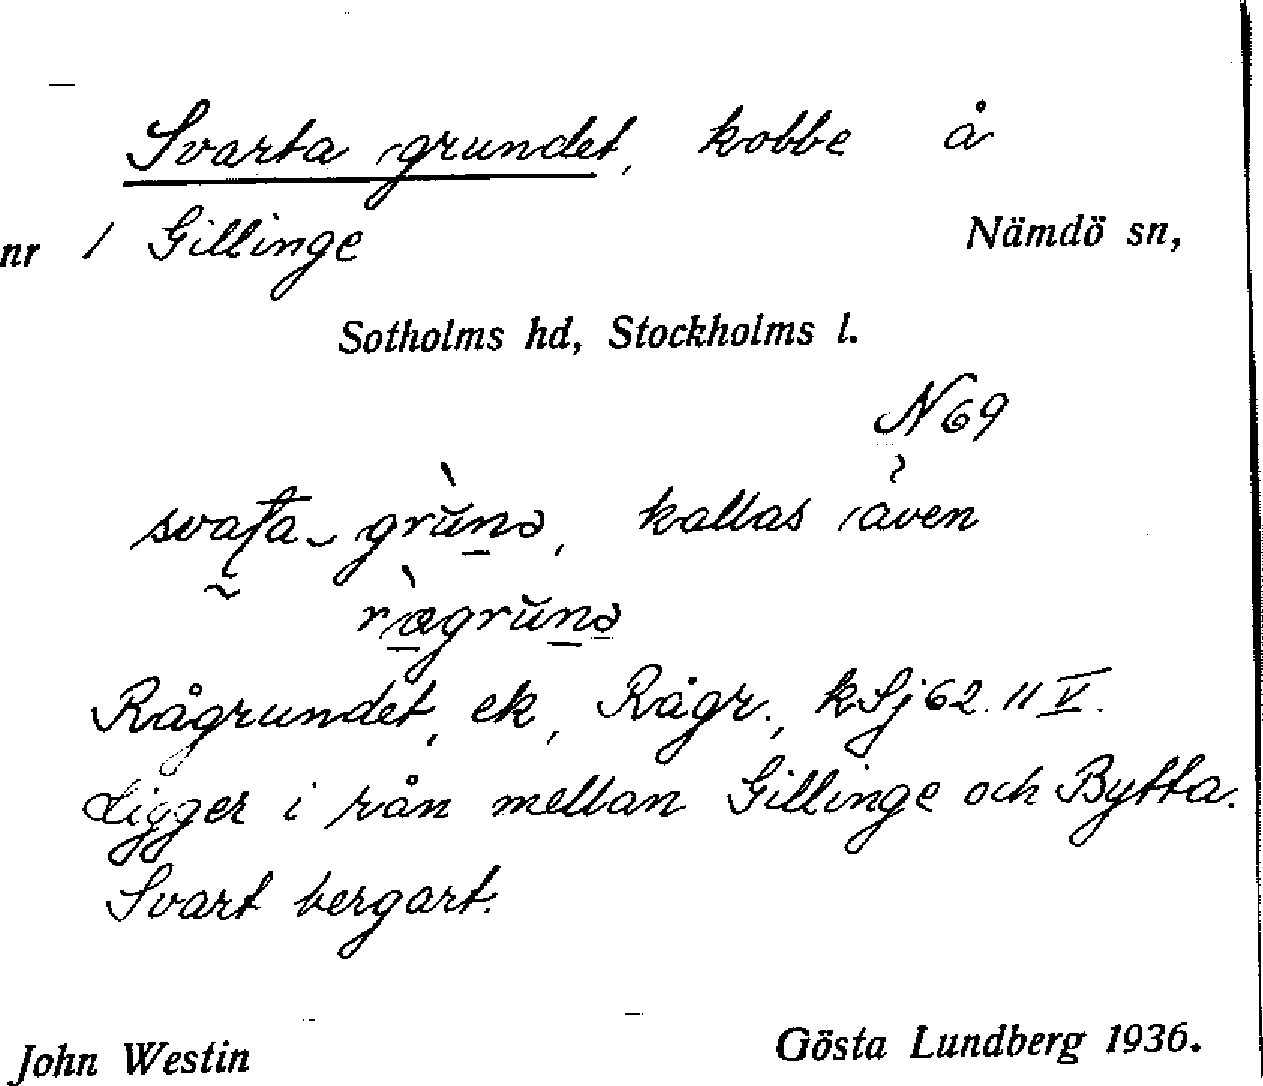 Svarta grundet, kobbe å
nr 1 Gillinge Nämdö sn,
Sotholms hd, Stockholms l.
N 69
kallas även
Rågrundet, ek, Rågr., kSj 62. 11 V.
Ligger i rån mellan Gillinge och Bytta.
Svart bergart.
John Westin Gösta Lundberg 1936.